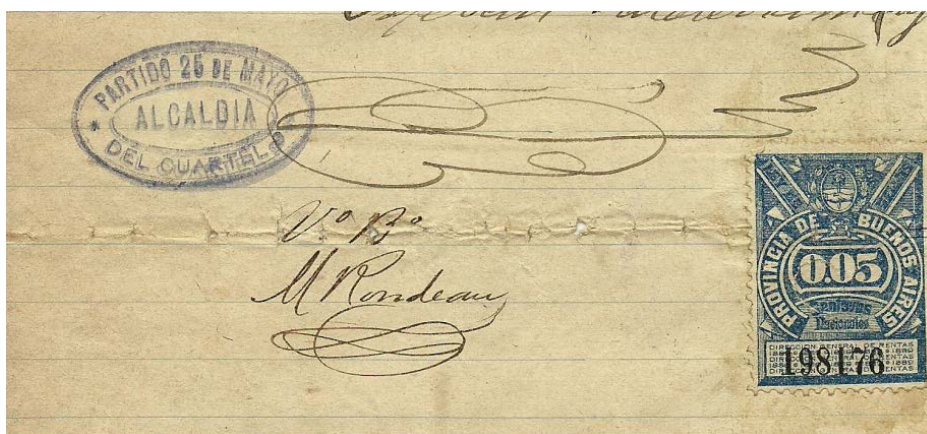 PARTIDO 25 DE MAYO
ALCALDIA
DEL CUARTEL
Vº Bº
M Rondeau
PROVINCIA DE BUENOS AIRES
0.05
Centavos
Nacionales
DIRECCION GENERAL DE RENTAS
198176